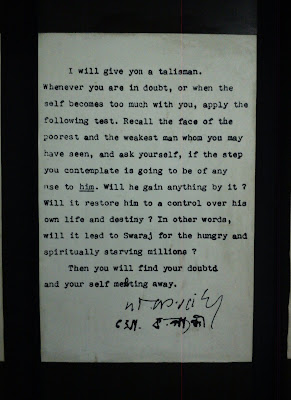 I will give you a talisman.
Whenever you are in doubt, or when the
self becomes too much with you, apply the
following test. Recall the face of the
poorest and the weakest man whom you may
have seen, and ask yourself, if the step
you contemplate is going to be of any
use to him. Will he gain anything by it ?
Will it restore him to a control over his
own life and destiny ? In other words,
will it lead to Swaraj for the hungry and
spiritually starving millions ?
Then you will find your doubtd
and your self melting away.